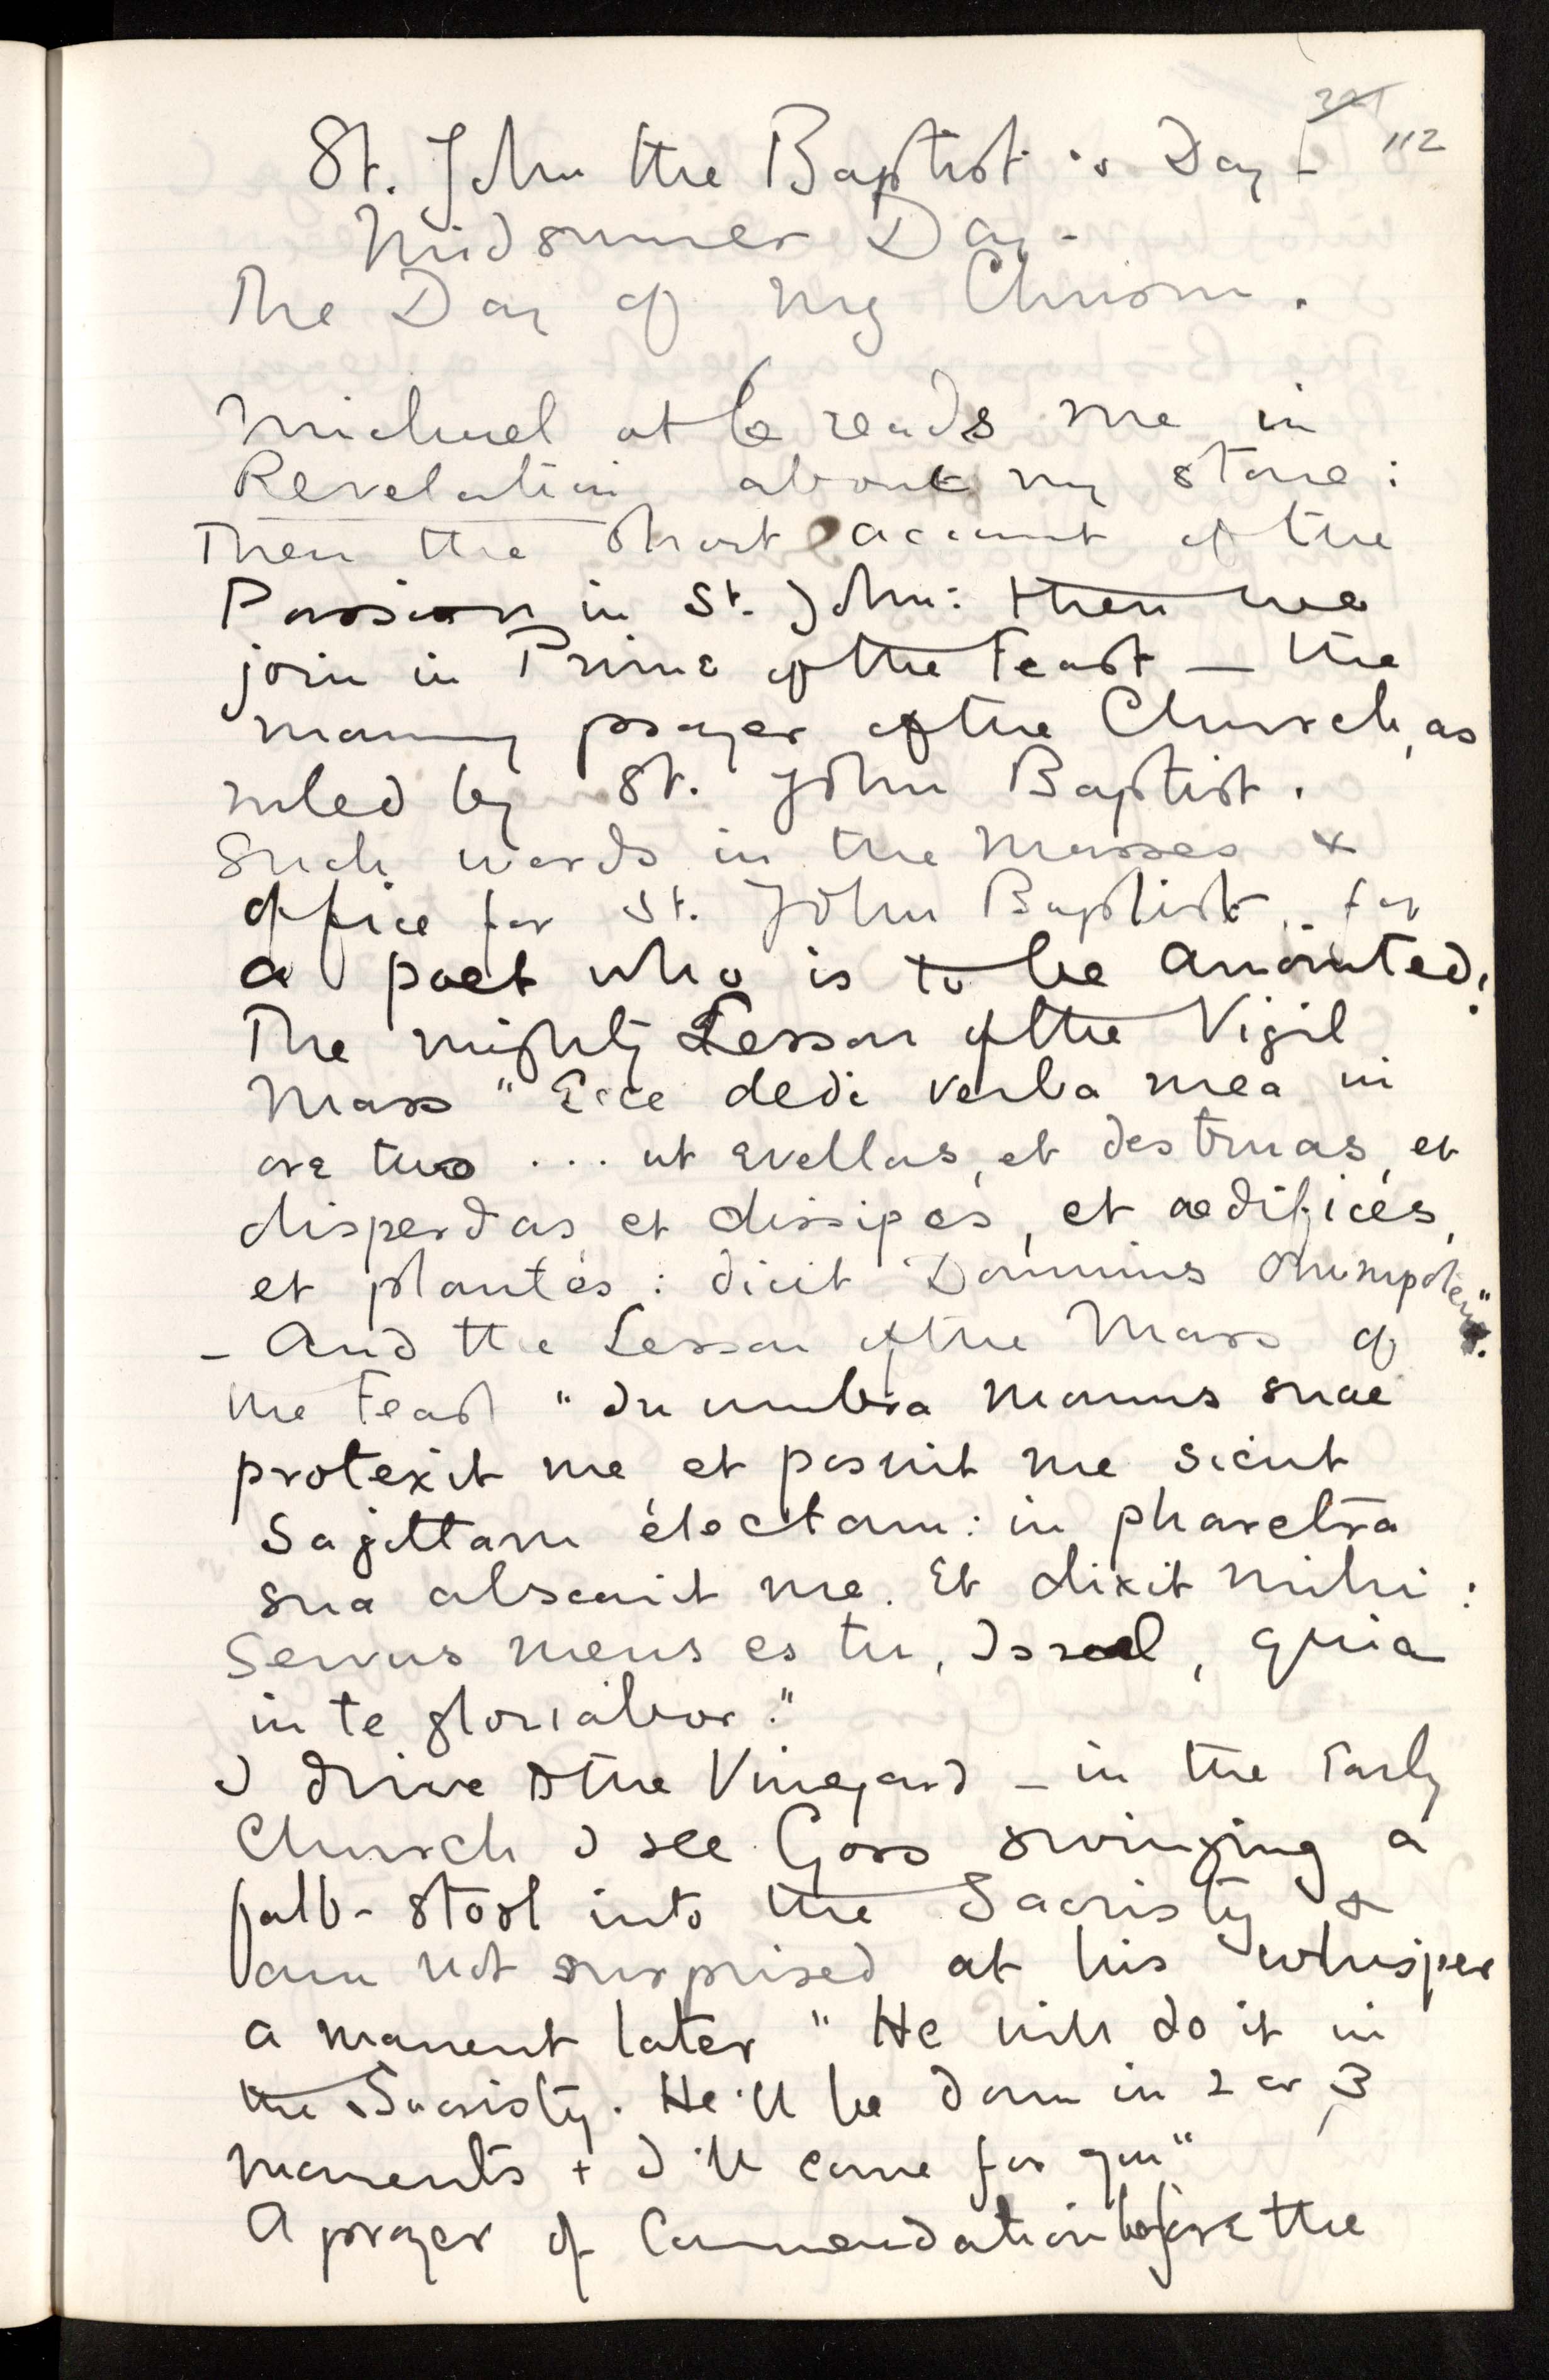 112
St. John the Baptist's Day -
Midsummer Day -
The Day of my Chrism.
Michael at 6 reads me in
Revelation about my stone:
Then the short account of the
Passion in St. John: then we
join in Prime of the Feast — the
morning prayer of the Church, as
ruled by St. John Baptist.
Such words in the Masses &
Office for St. John Baptist, for
a poet who is to be anointed!
The mighty Lesson of the Vigil
Mass "Ecce dedi verba mea in
ore tuo ... ut evellas, et destruas, et
disperdas et dissipes, et aedifices,
et plantes: dicit Dominus Omnipotens".
- And the Lesson of the Mass of
the Feast "In umbra manus suae
protexit me et posuit me sicut
Sagittam electam: in pharetra
sua abscondit me. Et dixit mihi:
Servus meus es tu, Israel, quia
in te gloriabor."
I drive to the Vineyard - in the Early
Church I see Goss swinging a
fald-stool into the Sacristy &
am not surprised at his whisper
a moment later "He will do it in
the Sacristy. He'll be down in 2 or 3
moments + I'll come for you"
A prayer of Commendation before the